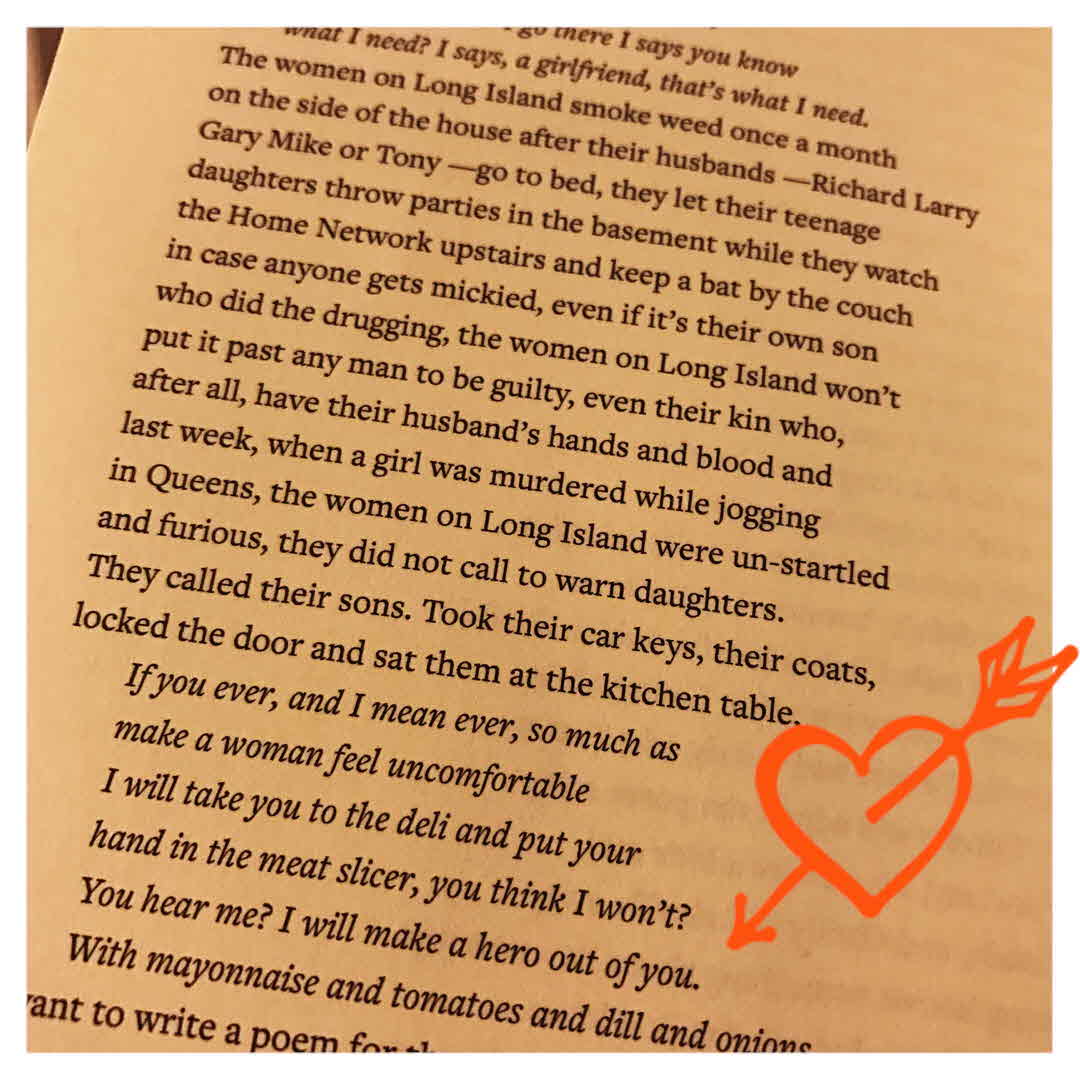 go there I says you know
what I need? I says, a girlfriend, that's what I need.
The women on Long Island smoke weed once a month
on the side of the house after their husbands —Richard Larry
Gary Mike or Tony —go to bed, they let their teenage
daughters throw parties in the basement while they watch
the Home Network upstairs and keep a bat by the couch
in case anyone gets mickied, even if it's their own son
who did the drugging, the women on Long Island won't
put it past any man to be guilty, even their kin who,
after all, have their husband's hands and blood and
last week, when a girl was murdered while jogging
in Queens, the women on Long Island were un-startled
and furious, they did not call to warn daughters.
They called their sons. Took their car keys, their coats,
locked the door and sat them at the kitchen table.
If you ever, and I mean ever, so much as
make a woman feel uncomfortable
I will take you to the deli and put your
hand in the meat slicer, you think I won't?
You hear me? I will make a hero out of you.
With mayonnaise and tomatoes and dill and onions
to write a poem for